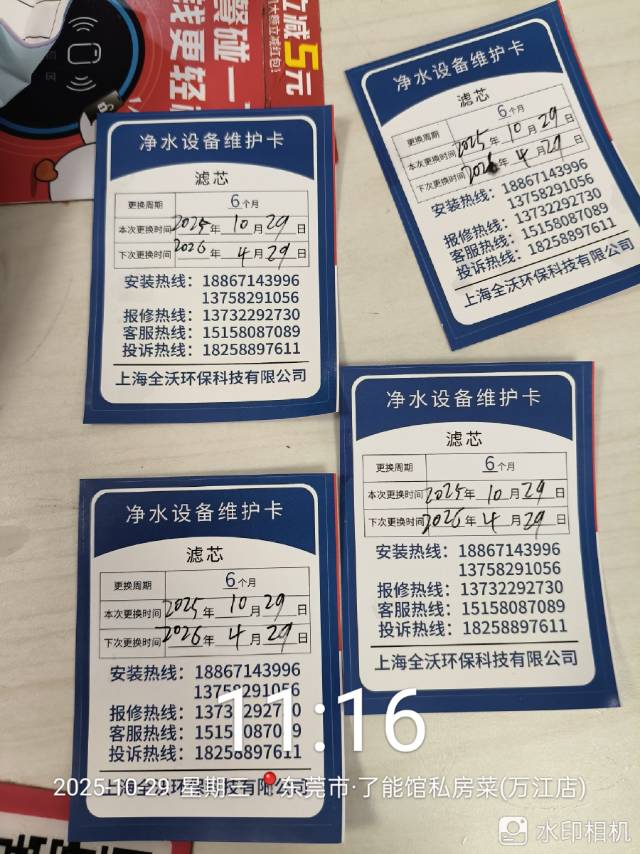 立减5元
大额立减红包
碰一
钱更轻
净水设备维护卡
滤芯
更换周期 6个月
本次更换时间 2025年 10月29日
下次更换时间 2026年 4月29日
安装热线：18867143996
13758291056
报修热线：13732292730
客服热线：15158087089
投诉热线：18258897611
上海全沃环保科技有限公司
净水设备维护卡
滤芯
更换周期 6个月
本次更换时间 2025年 10月29日
下次更换时间 2026年 4月29日
安装热线：18867143996
13758291056
报修热线：13732292730
客服热线：15158087089
投诉热线：18258897611
上海全沃环保科技有限公司
净水设备维护卡
滤芯
更换周期 6个月
本次更换时间 2025年 10月29日
下次更换时间 2026年 4月29日
安装热线：18867143996
13758291056
报修热线：13732292730
客服热线：15158087089
投诉热线：18258897611
上海全沃环保科技有限公司
净水设备维护卡
滤芯
更换周期 6个月
本次更换时间 2025年 10月29日
下次更换时间 2026年 4月29日
安装热线：18867143996
13758291056
报修热线：13732292730
客服热线：15158087089
投诉热线：18258897611
上海全沃环保科技有限公司
11:16
2025-10-29 星期三 东莞市·了能馆私房菜(万江店)
水印相机